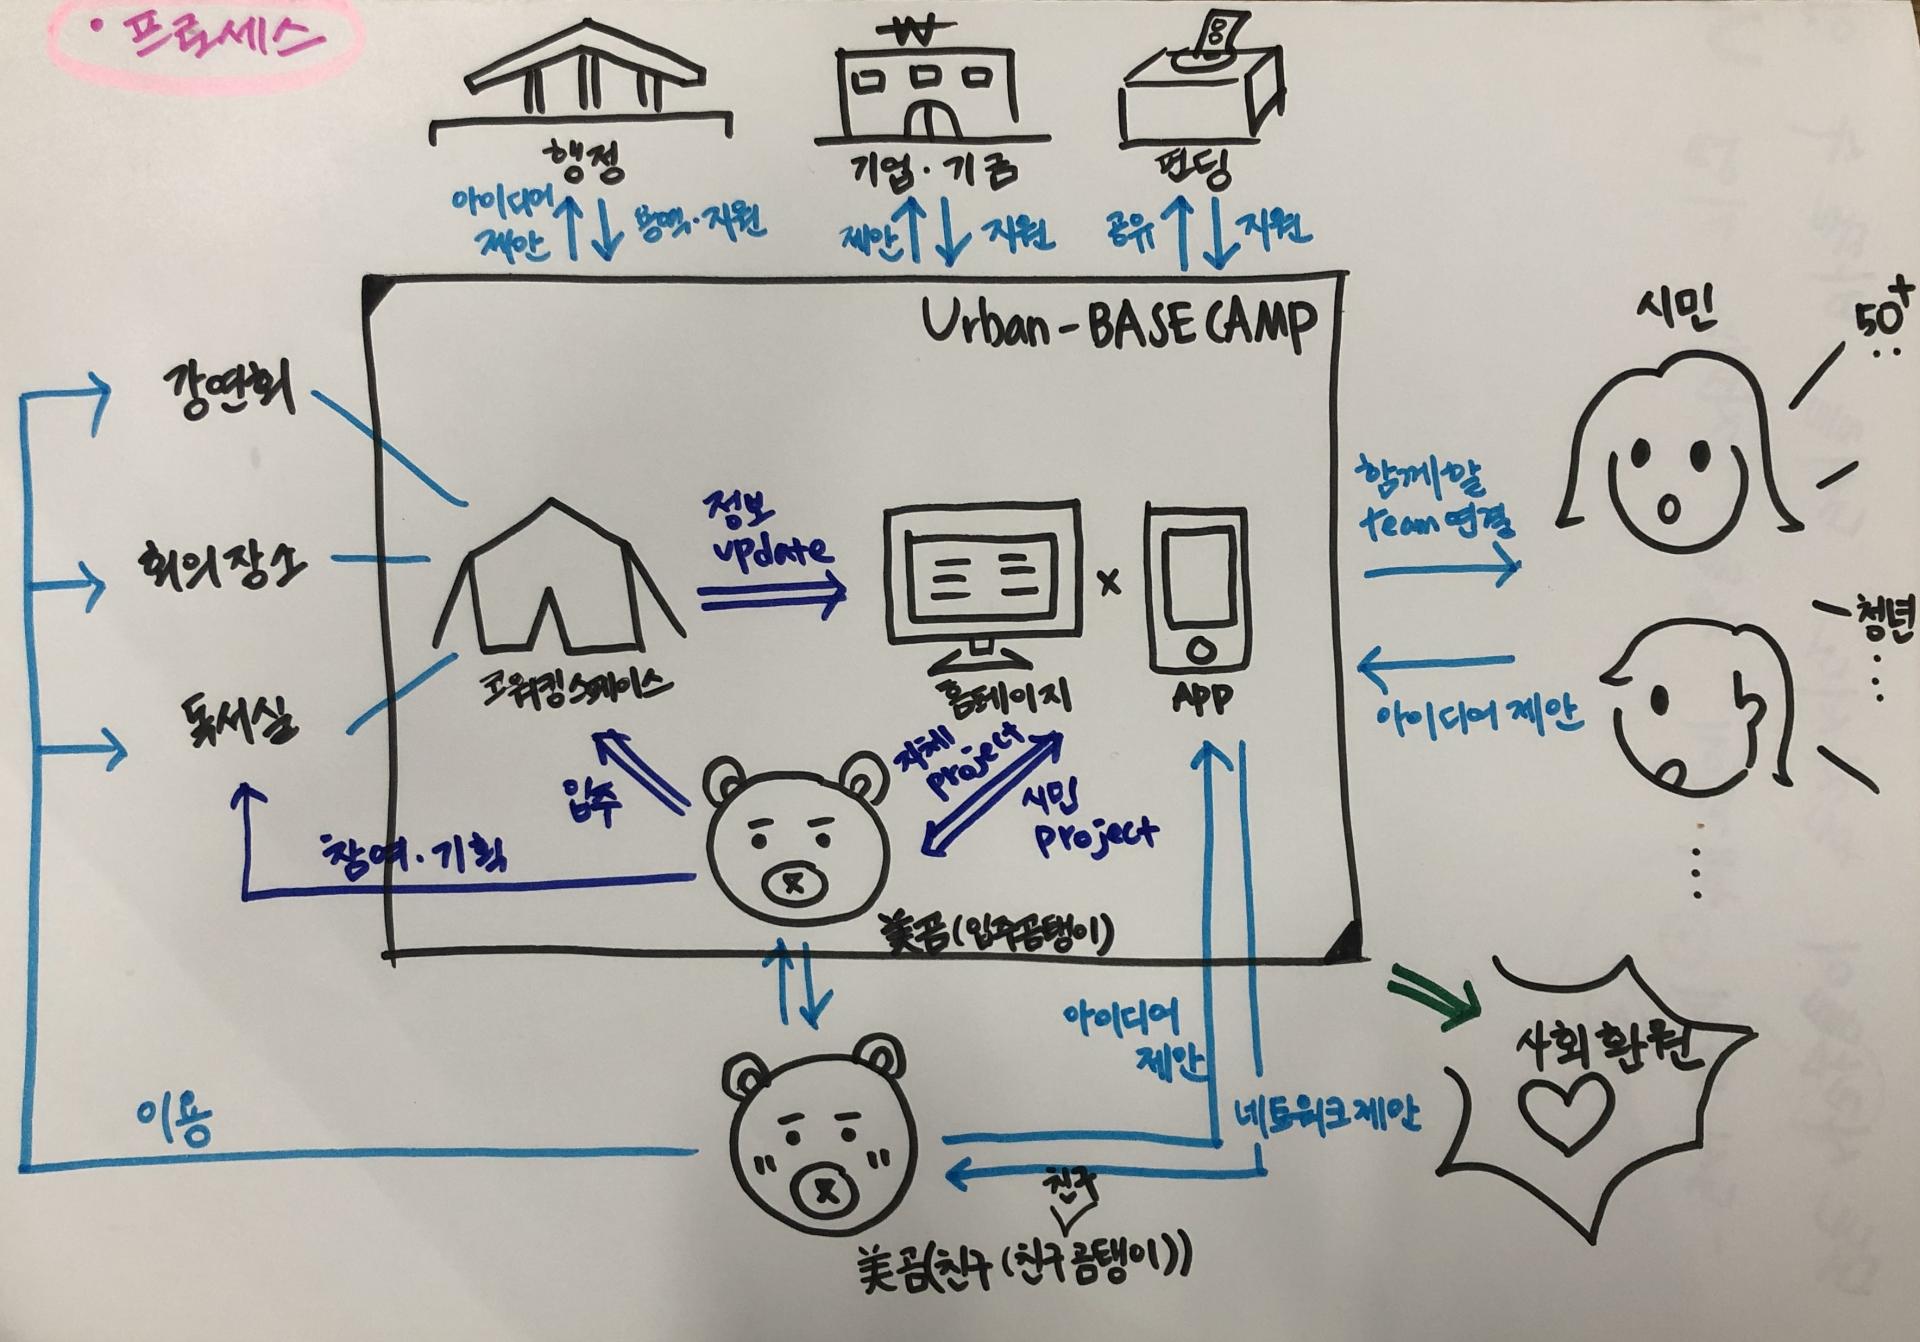 • 프로세스
₩
행정
기업·기금
펀딩
아이디어
제안
용역·지원
제안
지원
공유
지원
Urban-BASE CAMP
시민
50+
강연회
회의장소
독서실
정보
update
함께할
team 연결
청년
아이디어 제안
코워킹스페이스
홈페이지
×
APP
입주
자체
project
시민
project
참여·기획
美곰(입주곰탱이)
아이디어
제안
네트워크제안
사회환원
이용
친구
美곰(친구(친구곰탱이))